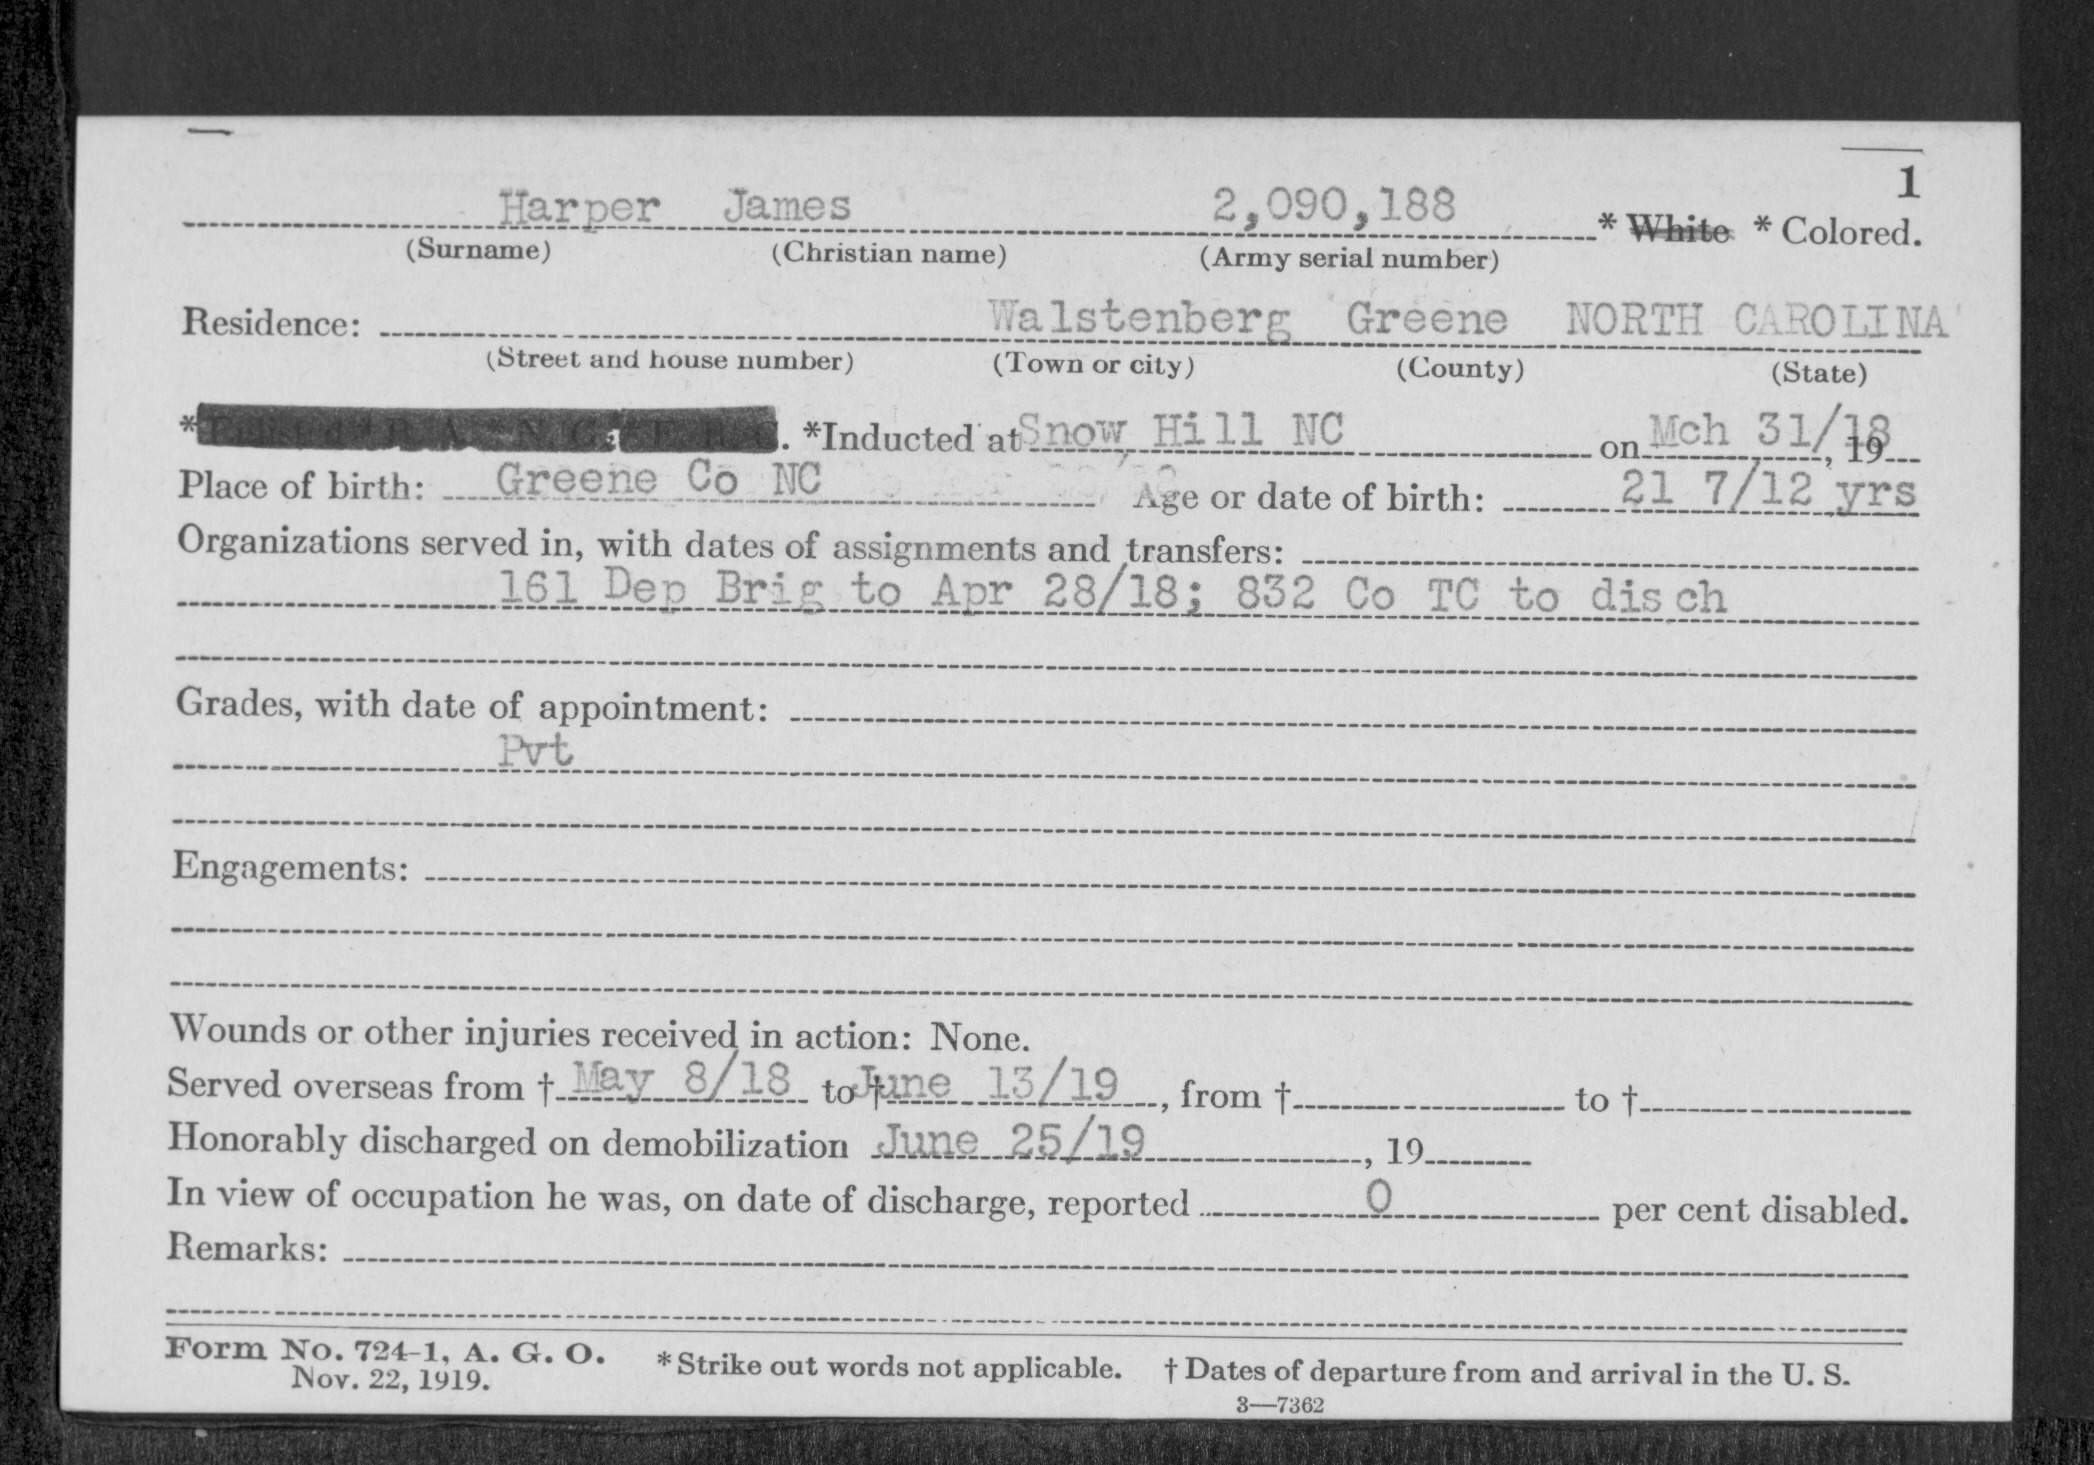 1
Harper James 2,090,188 * White * Colored.
(Surname) (Christian name) (Army serial number)
Residence: Walstenberg Greene NORTH CAROLINA
(Street and house number) (Town or city) (County) (State)
*Enlisted * R. A. * N. G. * E. R. C. *Inducted at Snow Hill NC on Mch 31/18, 19
Place of birth: Greene Co NC Age or date of birth: 21 7/12 yrs
Organizations served in, with dates of assignments and transfers:
161 Dep Brig to Apr 28/18; 832 Co TC to disch
Grades, with date of appointment:
Pvt
Engagements:
Wounds or other injuries received in action: None.
Served overseas from † May 8/18 to † June 13/19, from † to †
Honorably discharged on demobilization June 25/19, 19
In view of occupation he was, on date of discharge, reported 0 per cent disabled.
Remarks:
Form No. 724-1, A. G. O. *Strike out words not applicable. † Dates of departure from and arrival in the U. S.
Nov. 22, 1919.
3—7362